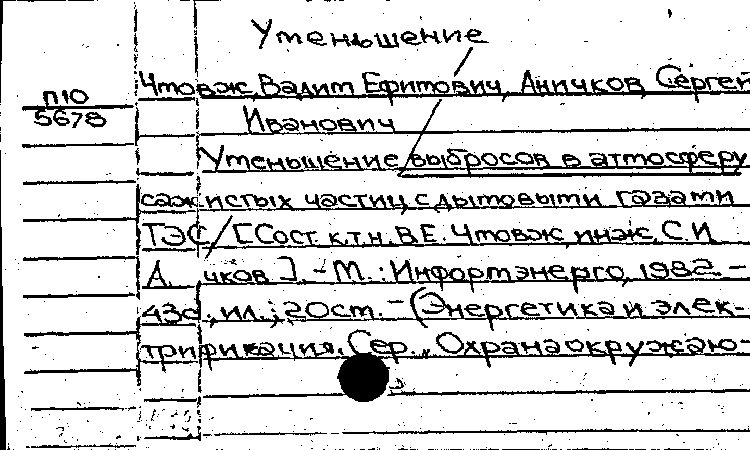 Уменьшение
Чмовж, Вадим Ефимович, Аничков, Сергей
П10
5678
Иванович
Уменьшение выбросов в атмосферу
сажистых частиц с дымовыми газами
ТЭС / [Сост. к.т.н. В.Е. Чмовж, инж. С.И.
А чков]. - М.: Информэнерго, 1982. -
43с., ил.; 20см. - (Энергетика и элек-
трификация. Сер., Охрана окружаю-